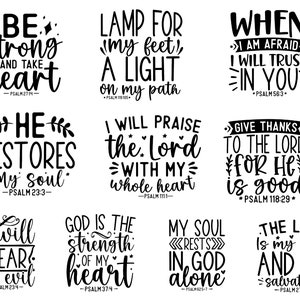 BE
strong
AND TAKE
heart
PSALM 27:14
LAMP FOR
my feet
A LIGHT
on my path
PSALM 119:105
WHEN
I AM AFRAID
I WILL TRUST
IN YOU
PSALM 56:3
HE
RESTORES
My soul
PSALM 23:3
I WILL PRAISE
the Lord
WITH MY
whole heart
PSALM 111:1
GIVE THANKS
TO THE LORD
FOR HE
is good
PSALM 118:29
will
EAR
evil
GOD IS THE
strength
OF MY
heart
MY SOUL
RESTS
IN GOD
alone
THE L
Is my
AND
salva